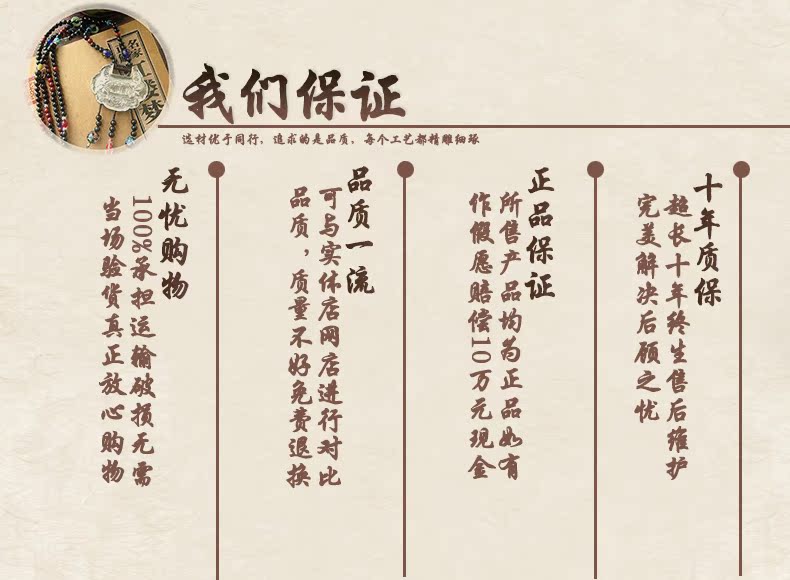 我们保证
选材优于同行，追求的是品质，每个工艺都精雕细琢
十年质保
超长十年终生售后维护
完美解决后顾之忧
正品保证
所售产品均为正品如有
作假愿赔偿10万元现金
品质一流
可与实体店网店进行对比
品质，质量不好免费退换
无忧购物
100%承担运输破损无需
当场验货真正放心购物